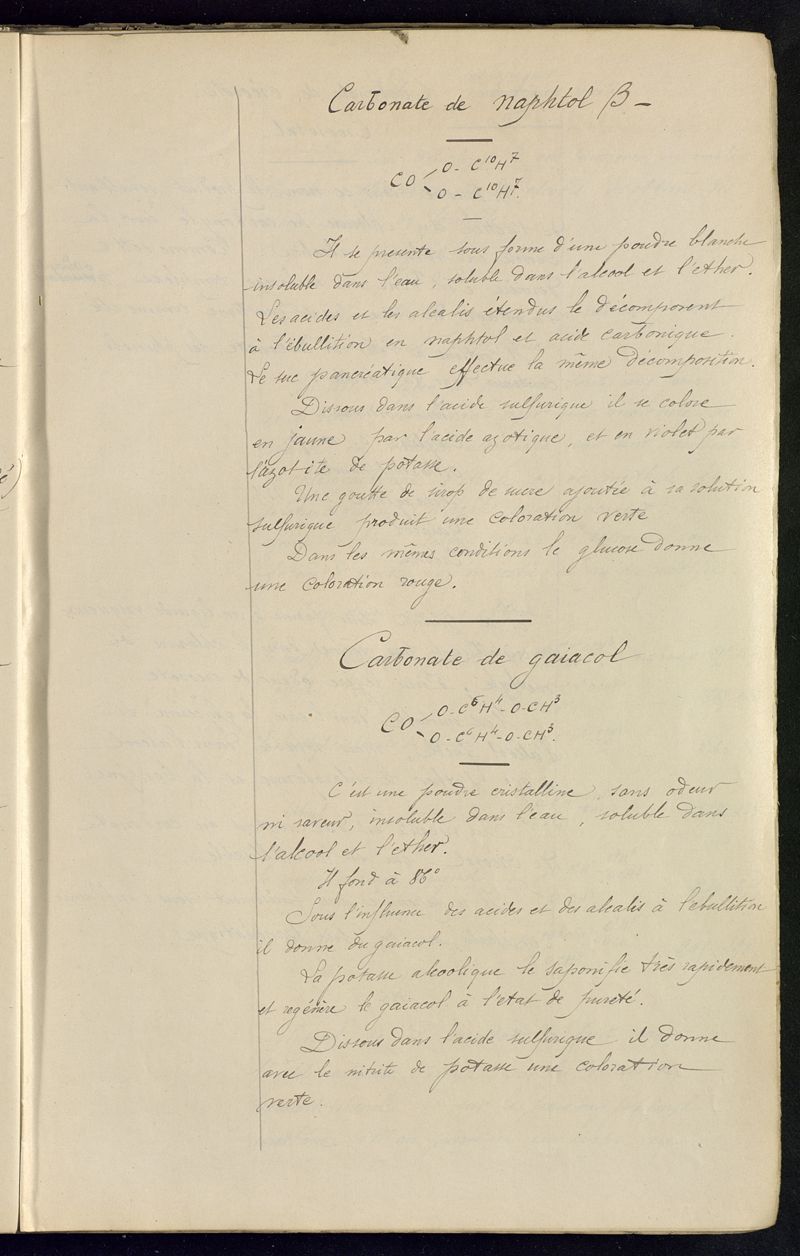 Carbonate de naphtol β –
CO O - C¹⁰H⁷
O - C¹⁰H⁷.
Il se présente sous forme d'une poudre blanche
insoluble dans l'eau, soluble dans l'alcool et l'ether.
Les acides et les alcalis étendus le décomposent
à l'ébullition en naphtol et acide carbonique.
Le suc pancréatique effectue la même décomposition.
Dissous dans l'acide sulfurique il se colore
en jaune par l'acide azotique, et en violet par
l'azotite de potasse.
Une goutte de sirop de sucre ajoutée à sa solution
sulfurique produit une coloration verte
Dans les mêmes conditions le glucose donne
une coloration rouge.
Carbonate de gaiacol
CO O-C⁶H⁴-O-CH³
O-C⁶H⁴-O-CH³.
C'est une poudre cristalline, sans odeur
ni saveur, insoluble dans l'eau, soluble dans
l'alcool et l'ether.
Il fond à 86°
Sous l'influence des acides et des alcalis à l'ebullition
il donne du gaiacol.
La potasse alcoolique le saponifie très rapidement
et regénère le gaiacol à l'etat de pureté.
Dissous dans l'acide sulfurique il donne
avec le nitrite de potasse une coloration
verte.